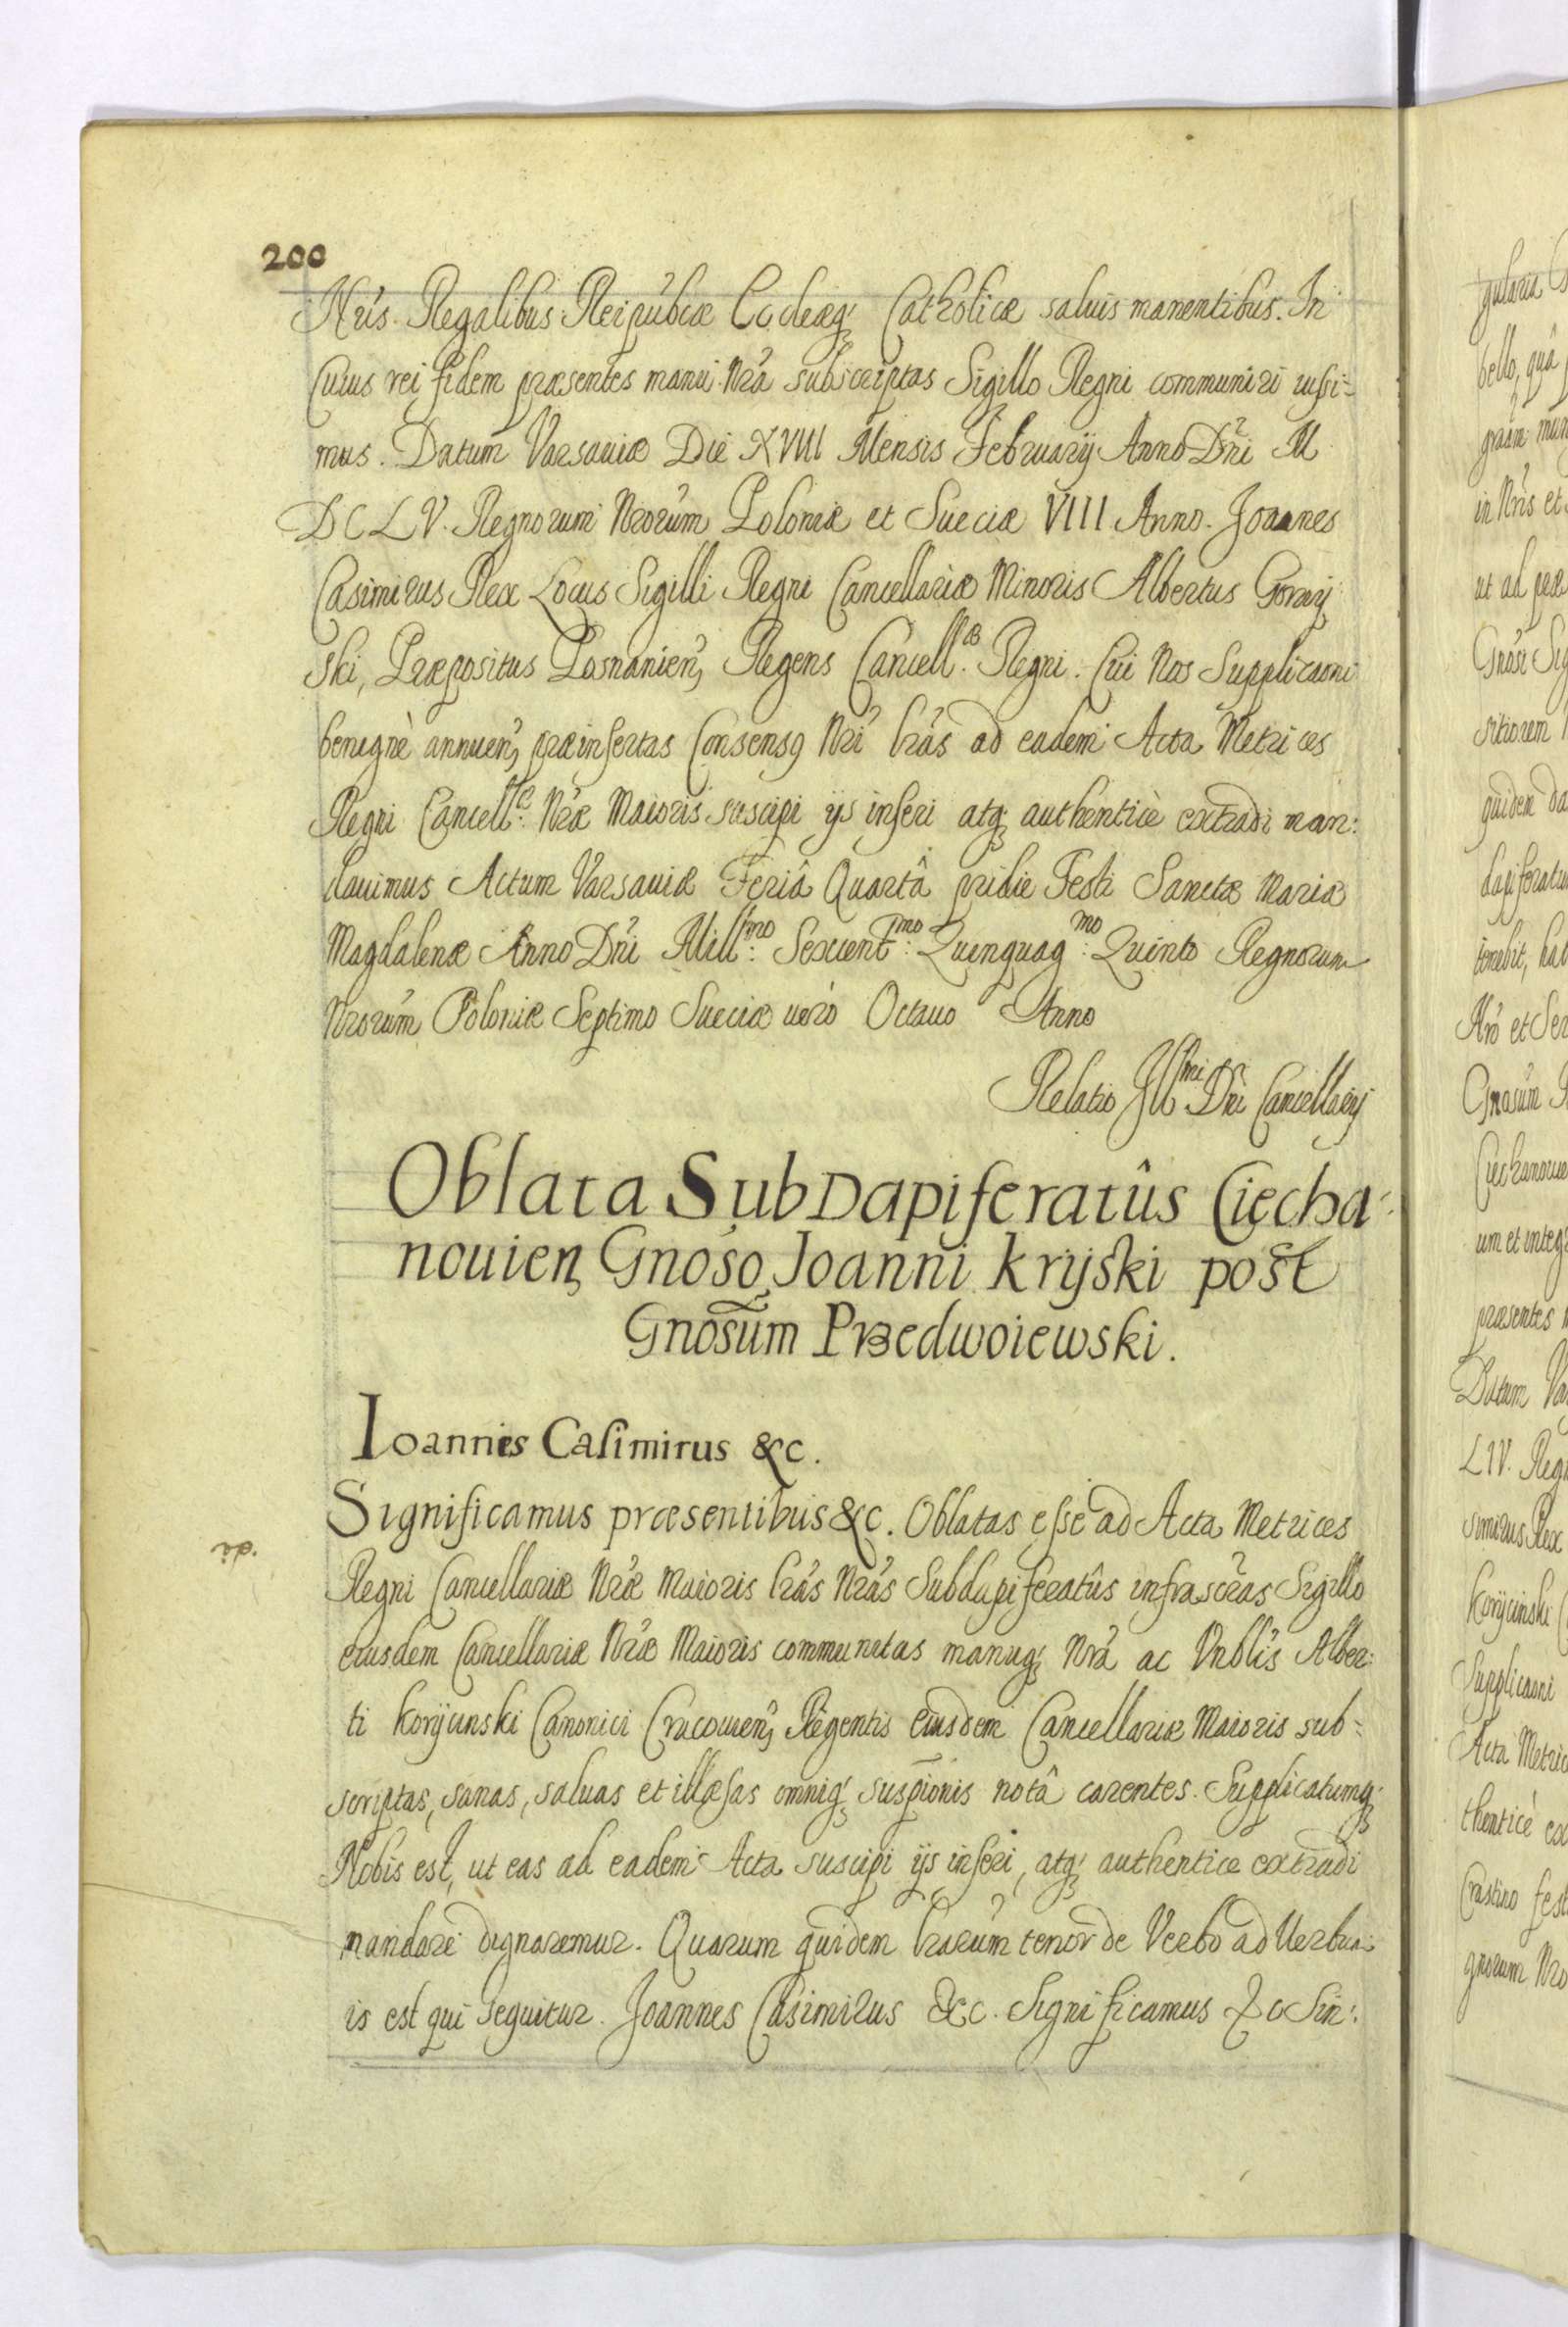 200
Nris Regalibus Reipublicæ Ecclæq; Catholicæ saluis manentibus. In
Cuius rei fidem præsentes manu Nrã subscriptas Sigillo Regni communiri iussi=
mus. Datum Varsauiæ Die XVIII Mensis February Anno Dñi M
DCLV. Regnorum Nrorum Poloniæ et Sueciæ VIII Anno. Joannes
Casimirus Rex Locus Sigilli Regni Cancellariæ Minoris Albertus Goray
ski, Præpositus Posnanien, Regens Cancell.æ Regni. Cui Nos Supplicaoni
benignè annuen, præinsertas Consensq Nri lrãs ad eadem Acta Metrices
Regni Cancell.æ Nræ Maioris suscipi ijs inseri atq; authenticè extradi man:
dauimus Actum Varsauiæ Feriâ Quartâ pridie Festi Sanctæ Mariæ
Magdalenæ Anno Dñi Mill:mo Sexcent:mo Quinquag:mo Quinto Regnorum
Nrorum Poloniæ Septimo Sueciæ uerò Octauo Anno
Relatio Ill:mi Dñi Cancellarij
Oblata SubDapiferatûs Ciecha-
nouien, Gnoso Joanni Kryski post
Gnosum Przedwoiewski.
Ioannes Casimirus &c.
Significamus præsentibus &c. Oblatas esse ad Acta Metrices
Regni Cancellariæ Nræ Maioris lrãs Nrãs Subdapiferatûs infrascrãs Sigillo
eiusdem Cancellariæ Nræ Maioris communitas manuq; Nrã ac Vnblis Alber:
ti Koryciński Canonici Cracouien, Regentis eiusdem Cancellariæ Maioris sub=
scriptas, sanas, saluas et illæsas omniq; suspionis notâ carentes. Supplicatumq;
Nobis est, ut eas ad eadem Acta suscipi ijs inseri, atq; authentice extradi
mandare dignaremur. Quarum quidem lrarum tenor de Verbo ad Verbum
is est qui sequitur. Joannes Casimirus &c. Significamus &c Sin: